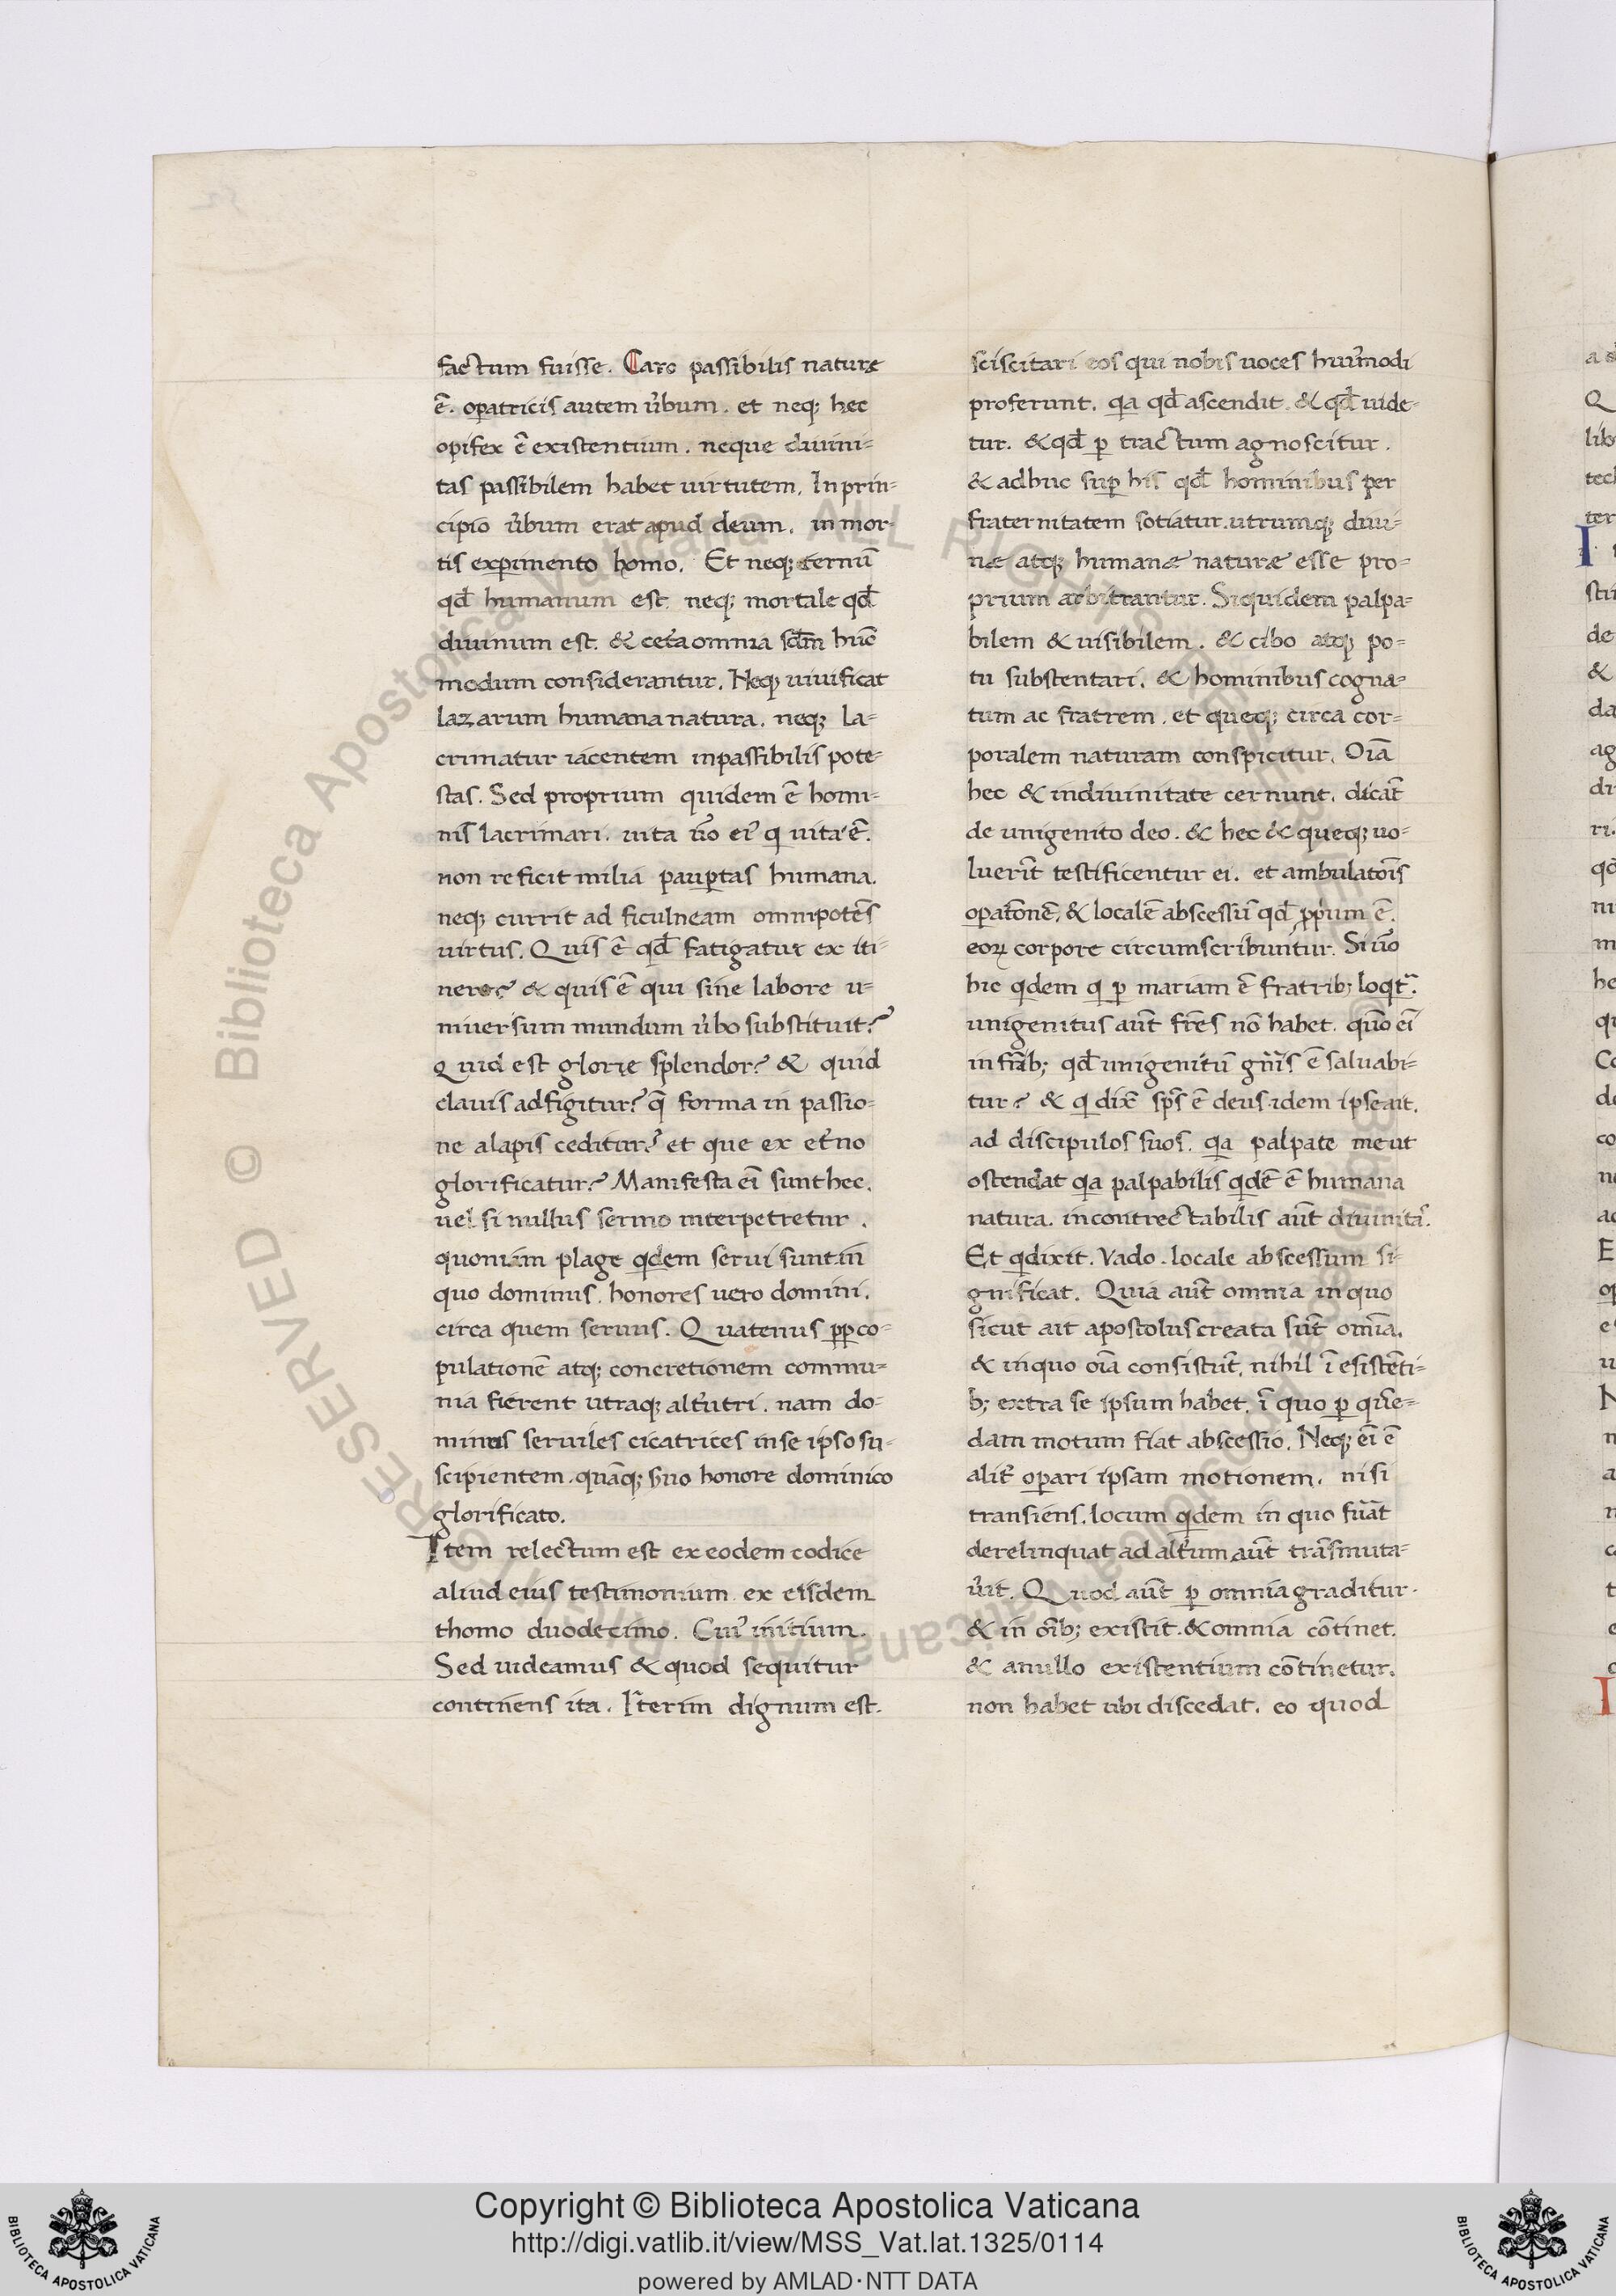 factum fuisse. Caro passibilis nature
ē. opatricis autem v̄bum. et neq; hec
opifex ē existentium. neque diuini-
tas passibilem habet uirtutem. In prin-
cipio v̄bum erat apud deum. in mor-
tis experimento homo. Et neq; eternū
qđ humanum est. neq; mortale qđ
diuinum est. & cet̄a omnia scd̄m hūc
modum considerantur. Neq; uiuificat
lazarum humana natura. neq; la-
crimatur iacentem inpassibilis pote-
stas. Sed proprium quidem ē homi-
nis lacrimari. uita ū̄o ei' q uita ē.
non reficit milia paup̱tas humana.
neq; currit ad ficulneam omnipotēs
uirtus. Quis ē qđ fatigatur ex iti-
nere? & quis ē qui sine labore u-
niuersum mundum v̄bo substituit?
quid est glorie splendor? & quid
clauis adfigitur? q̄ forma in passio-
ne alapis ceditur? et que ex et̄no
glorificatur? Manifesta ei̅ sunt hec.
uel si nullus sermo interpetretur.
quoniam plage qdem serui sunt in
quo dominus. honores uero domini.
circa quem seruus. Quatenus pp co-
pulationē atq; concretionem commu-
nia fierent utraq; alt̄utri. nam do-
minus seruiles cicatrices in se ipso su-
scipientem. quāq; suo honore dominico
glorificato.
Item relectum est ex eodem codice
aliud eius testimonium ex eisdem
thomo duodecimo. Cui' initium.
Sed uideamus & quod sequitur
continens ita. Iterim dignum est.
sciscitari eos qui nobis uoces hui'modi
proferunt. qa qđ ascendit. & qđ uide-
tur. & qđ p̱ tractum agnoscitur.
& adhuc sup̱ his qđ hominibus per
fraternitatem sotiatur. utrumq; diui-
næ atq; humanæ naturæ esse pro-
prium arbitrantur. Siquidem palpa-
bilem & uisibilem. & cibo atq; po-
tu substentari. & hominibus cogna-
tum ac fratrem. et queq; circa cor-
poralem naturam conspicitur. Oīa
hec & in diuinitate cernunt. dicāt
de unigenito deo. & hec & queq; uo-
luerīt testificentur ei. et ambulatoīs
op̱atōnē, & localē abscessū qđ pp̱ium ē.
eoꝝ corpore circumscribuntur. Si ūo
hic qdem q p̱ mariam ē fratrib; loqt̄.
unigenitus aūt fr̄es nō habet. quo ei̅
in fr̄ib; qđ unigenitū gn̄is ē saluabi-
tur? & q dix̄ sp̄s ē deus idem ipse ait.
ad discipulos suos. qa palpate me ut
ostendat qa palpabilis qdē ē humana
natura. incontrectabilis aūt diuinitas.
Et q dixit. Vado. locale abscessum si-
gnificat. Quia aūt omnia in quo
sicut ait apostolus creata sūt omīa.
& in quo oīa consistūt. nihil ī esistēti-
b; extra se ipsum habet. ī quo p̱ quē-
dam motum fiat abscessio. Neq; ei̅ ē
alit̄ op̱ari ipsam motionem. nisi
transiens. locum qdem in quo fūat
derelinquat ad alt̄um aūt trāsmuta-
ūit. Quod aūt p̱ omnia graditur.
& in oīb; existit. & omnia cōtinet.
& a nullo existentium cōtinetur.
non habet ubi discedat. eo quod
Copyright © Biblioteca Apostolica Vaticana
http://digi.vatlib.it/view/MSS_Vat.lat.1325/0114
powered by AMLAD·NTT DATA